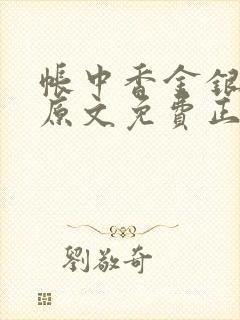 帳中香金銀
原文免費正
劉敬奇